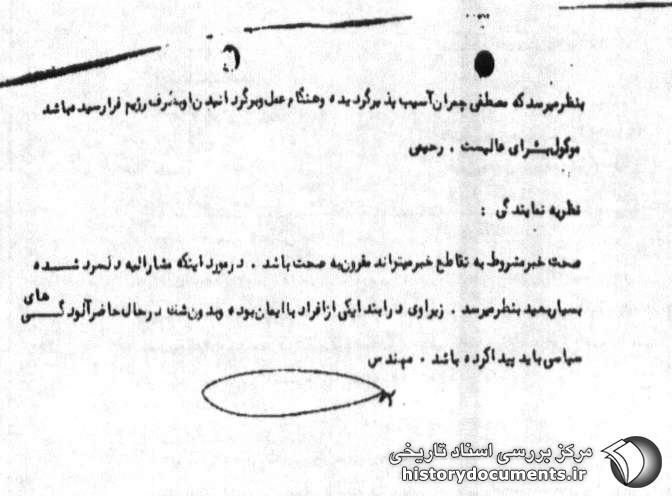 بنظر میرسد که مصطفی چمران آسیب پذیر گردیده و هنگام عمل و برگردانیدن او بطرف رژیم فرا رسیده میباشد
موکول بشرای عالیست . رحیمی
نظریه نمایندگی :
صحت خبر مشروط به تقاطع خبر میتواند مقرون به صحت باشد . در مورد اینکه مشارالیه دلسرد شده
بسیار بعید بنظر میرسد . زیرا وی در ابتدا یکی از افراد با ایمان بوده و بدون شک در حال حاضر آلودگی های
سیاسی باید پیدا کرده باشد . مهندس
مرکز بررسی اسناد تاریخی
historydocuments.ir